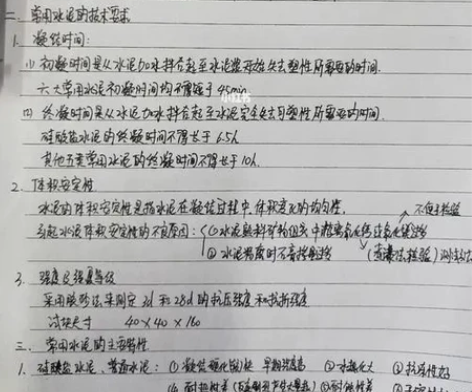 二、常用水泥的技术要求
1. 凝结时间:
(1) 初凝时间是从水泥加水拌合起至水泥浆开始失去塑性所需要的时间.
六大常用水泥初凝时间均不得短于45min.
小红书
(2) 终凝时间是从水泥加水拌合起至水泥完全失去可塑性所需要的时间.
硅酸盐水泥的终凝时间不得长于6.5h
其他五类常用水泥的终凝时间不得长于10h.
2. 体积安定性
水泥的体积安定性是指水泥在凝结过程中,体积变化的均匀性.
引起水泥体积安定性的不良原因:①水泥熟料矿物组成中游离氧化镁过
②水泥粉磨时不 (煮沸法检验) 测
3. 强度及强度等级
采用胶砂法来测定3d和28d的抗压强度和抗折强度
试块尺寸 40×40×160
三、常用水泥的主要特性
1. 硅酸盐水泥、普通水泥: ①凝结硬化快 早期强度高 ②水化热大 ③抗冻性好
④耐热性差 ⑤耐蚀性差